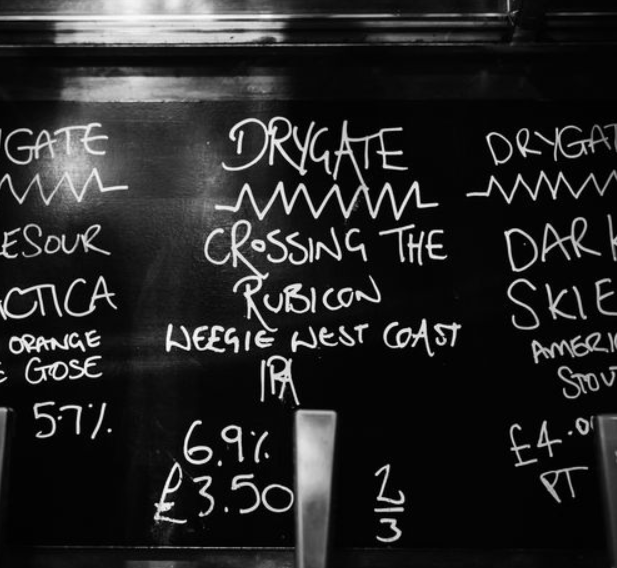 DRYGATE
CROSSING THE
RUBICON
WEEGIE WEST COAST
IPA
6.9%
£3.50
2/3
GATE
ESOUR
CTICA
ORANGE
GOSE
5.7%
DRYGAT
DARK
SKIE
AMERI
STOU
£4.0
PT